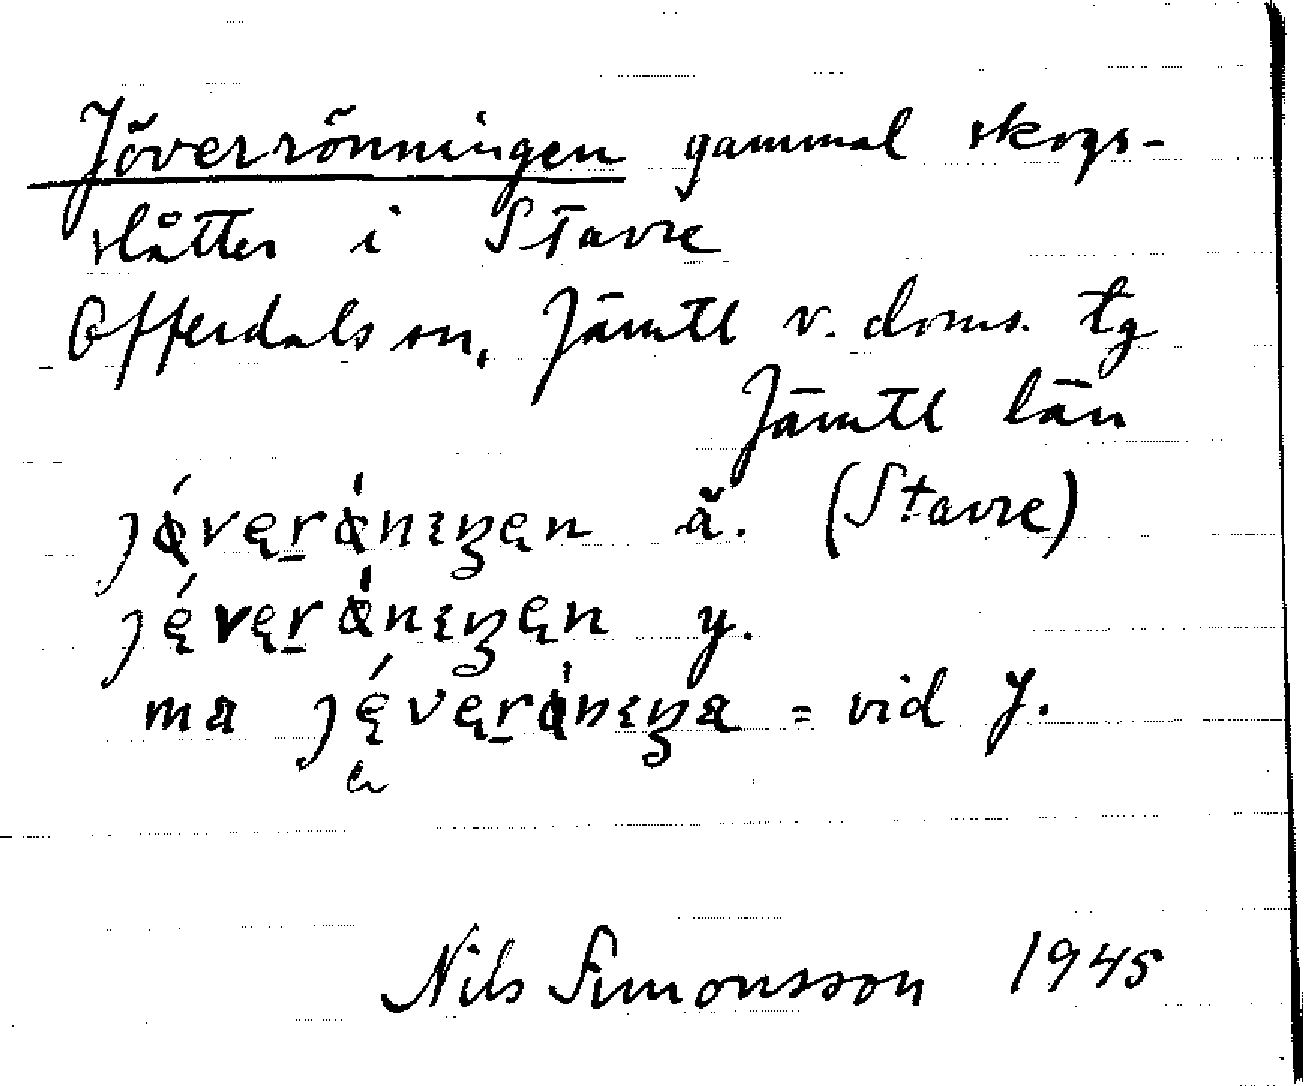 Jöverrönningen gammal skogs-
slåtter i Stavre
Offerdals sn, Jämtl v. doms. tg
Jämtl län
ä. (Stavre)
y.
ma = vid J.
Nils Simonsson 1945